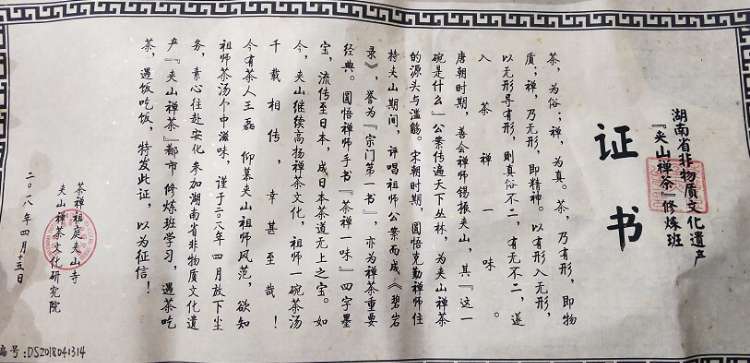 湖南省非物质文化遗产
『夹山禅茶』修炼班
证书
茶，为俗；禅，为真。茶，乃有形，即物
质；禅，乃无形，即精神。以有形入无形，
以无形寻有形，则真俗不二，有无不二，遂
入茶禅一味。
唐朝时期，善会禅师锡振夹山，其『这一
碗是什么』公案传遍天下丛林，为夹山禅茶
的源头与滥觞。宋朝时期，圆悟克勤禅师住
持夹山期间，评唱祖师公案而成《碧岩
录》，誉为『宗门第一书』，亦为禅茶重要
经典。圆悟禅师手书『茶禅一味』四字墨
宝，流传至日本，成日本茶道无上之宝。如
今，夹山继续高扬禅茶文化，祖师一碗茶汤
千载相传，幸甚至哉！
今有茶人王磊 仰慕夹山祖师风范，欲知
祖师茶汤个中滋味，谨于二〇一八年四月放下尘
务，素心往赴安化参加湖南省非物质文化遗
产『夹山禅茶』都市修炼班学习，遇茶吃
茶，遇饭吃饭，特发此证，以为征信！
茶禅祖庭夹山寺
夹山禅茶文化研究院
二〇一八年四月十五日
编号:DS2018041314